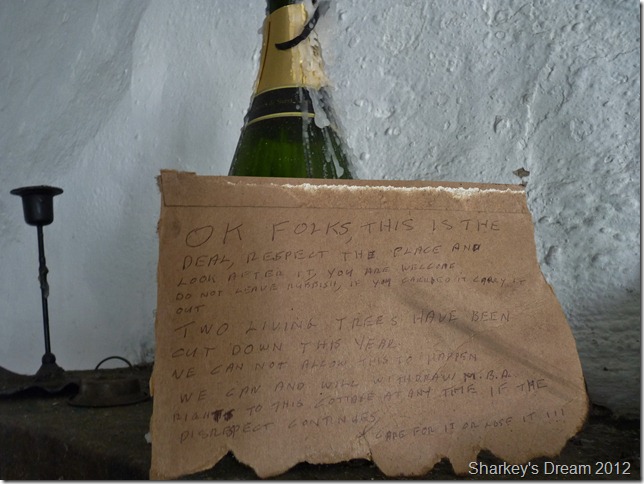 OK FOLKS, THIS IS THE
DEAL, RESPECT THE PLACE AND
LOOK AFTER IT, YOU ARE WELCOME
DO NOT LEAVE RUBBISH, IF YOU CARRIED IT CARRY IT
OUT
TWO LIVING TREES HAVE BEEN
CUT DOWN THIS YEAR.
WE CAN NOT ALLOW THIS TO HAPPEN
WE CAN AND WILL WITHDRAW M.B.A
RIGHTS TO THIS COTTAGE AT ANY TIME IF THE
DISRESPECT CONTINUES
CARE FOR IT OR LOSE IT !!!
Sharkey's Dream 2012